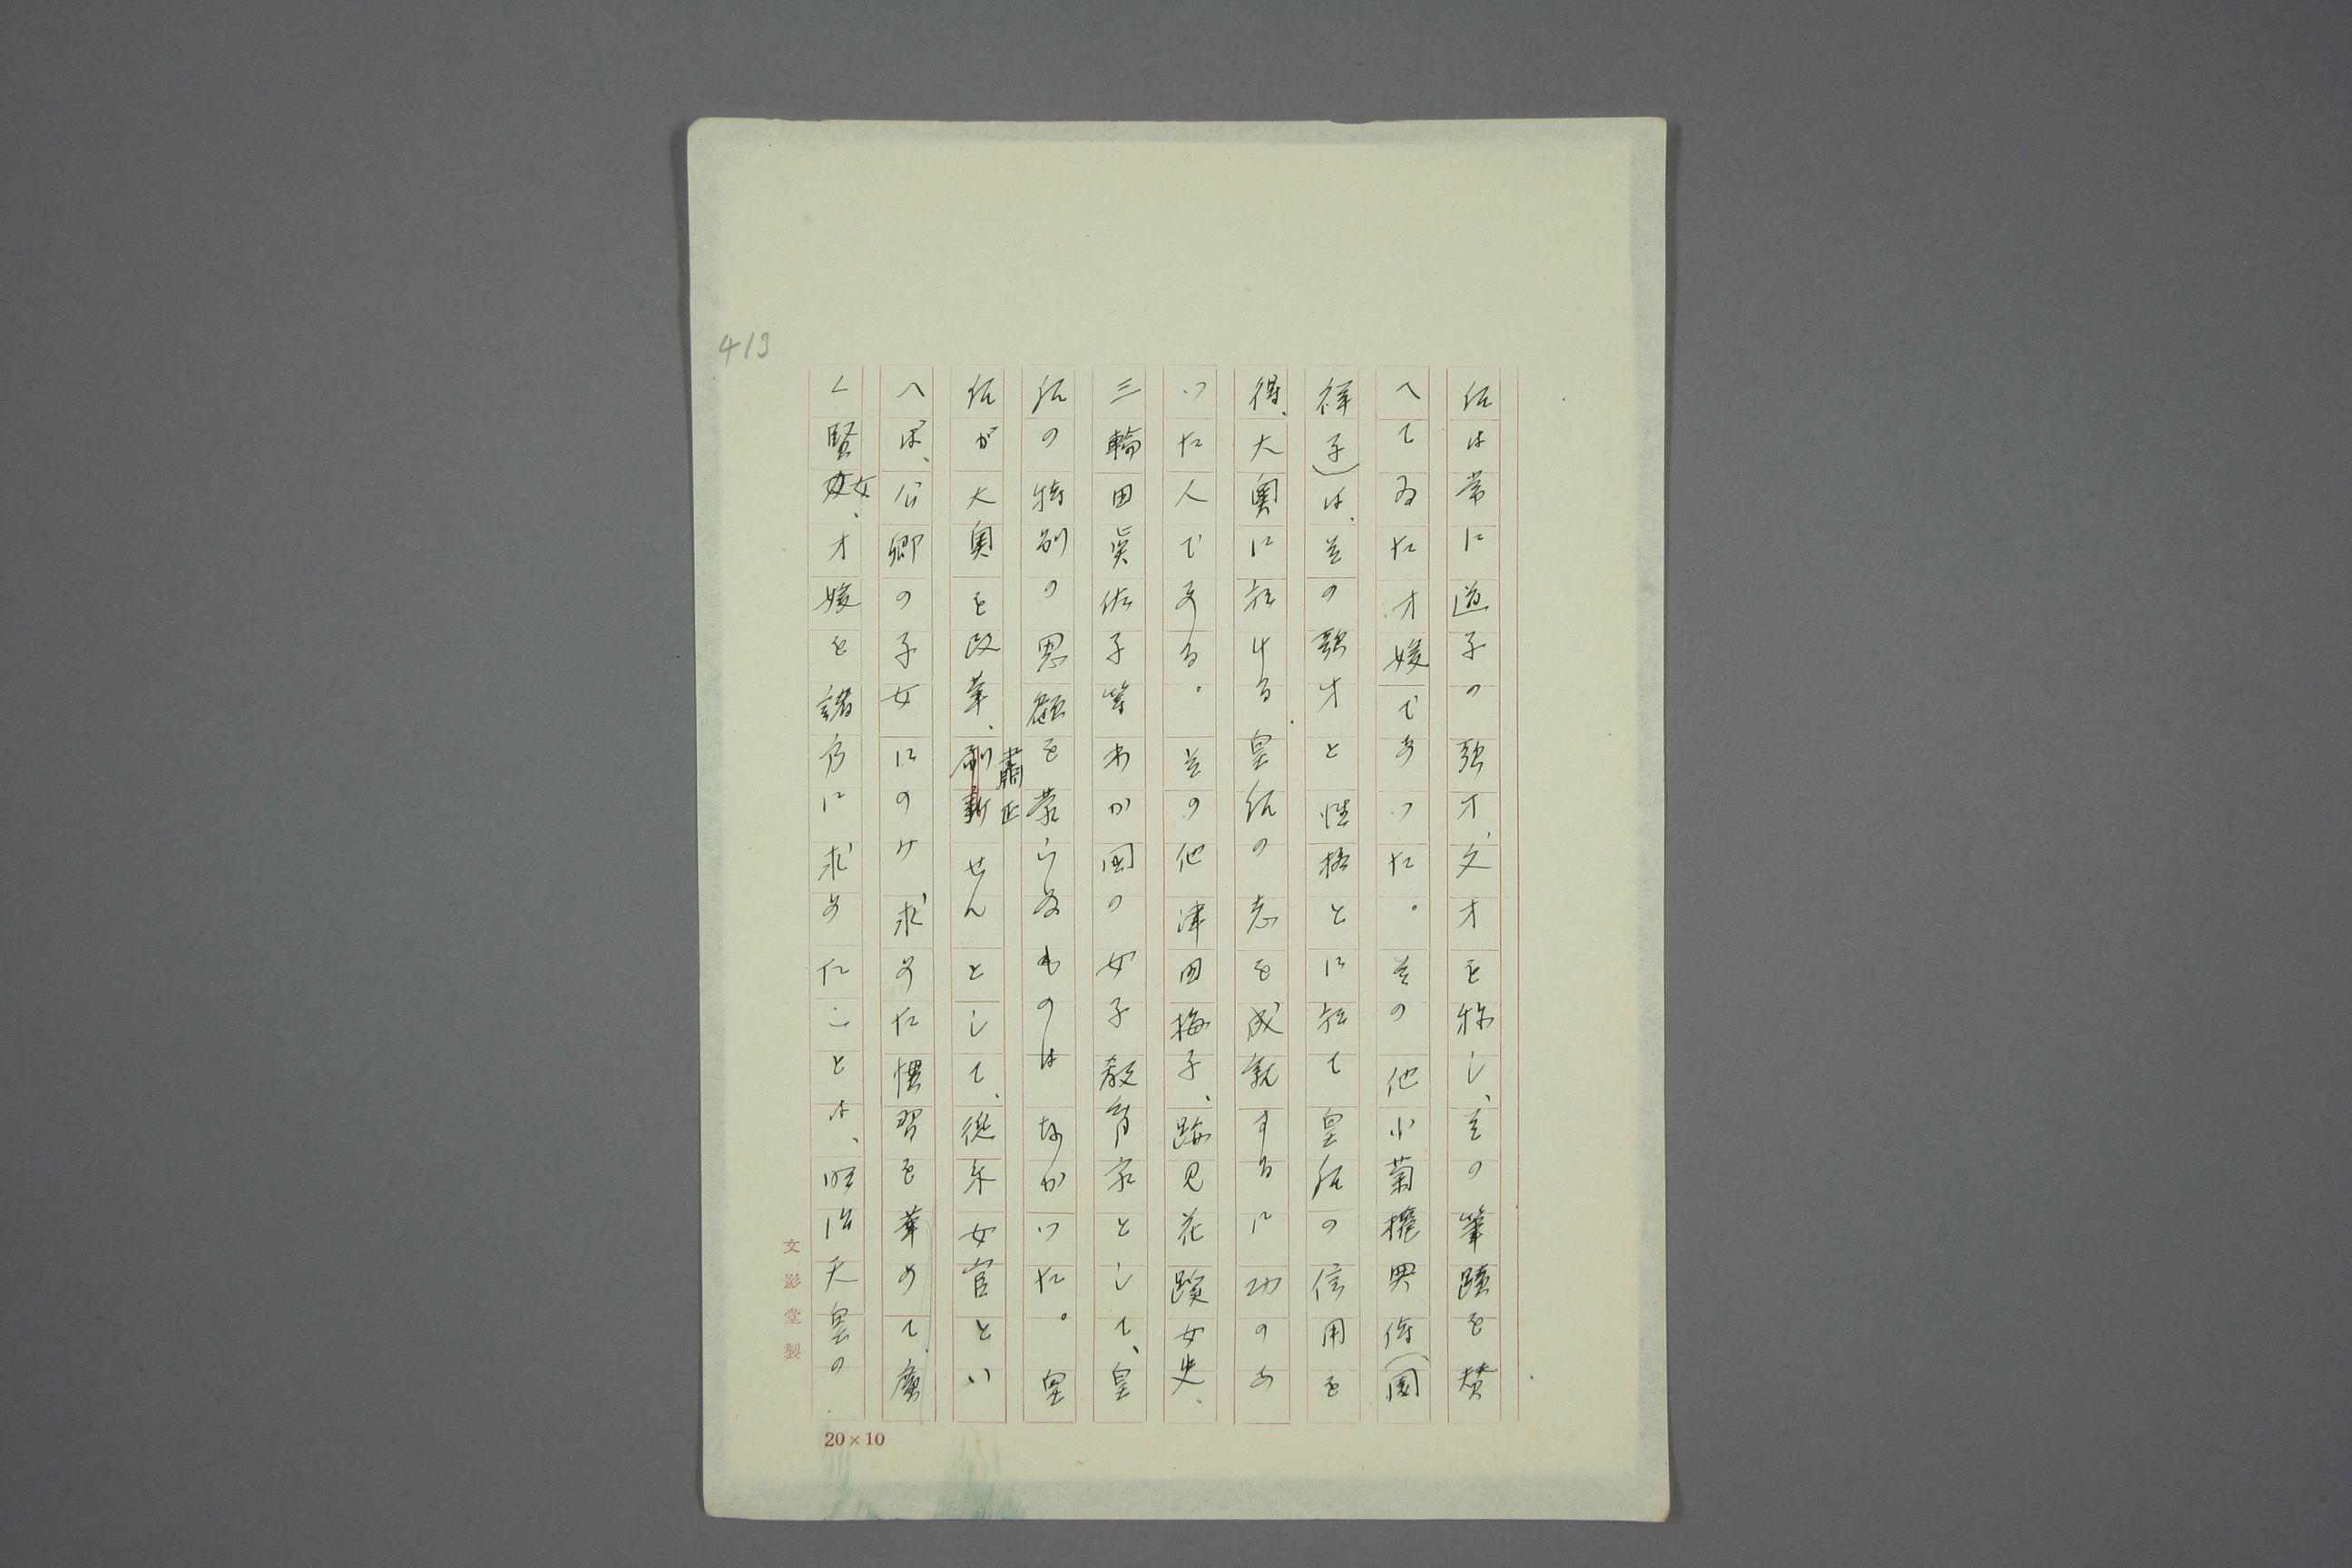 413
后は常に道子の歌才、文才を称し、其の筆蹟を賛
へてゐた才媛であつた。其の他小菊権典侍(園
祥子)は、其の歌才と性格とに於て皇后の信用を
得、大奥に於ける皇后の志を成就するに功のあ
つた人である。其の他津田梅子、跡見花蹊女史、
三輪田眞佐子等わが国の女子教育家として、皇
后の特別の恩顧を蒙らぬものはなかつた。皇
后が大奥を改革、肅正せんとして、従来女官とい
へば、公卿の子女にのみ求めた慣習を革めて、廣
く賢女、才媛を諸方に求めたことは、明治天皇の
文影堂製
20×10